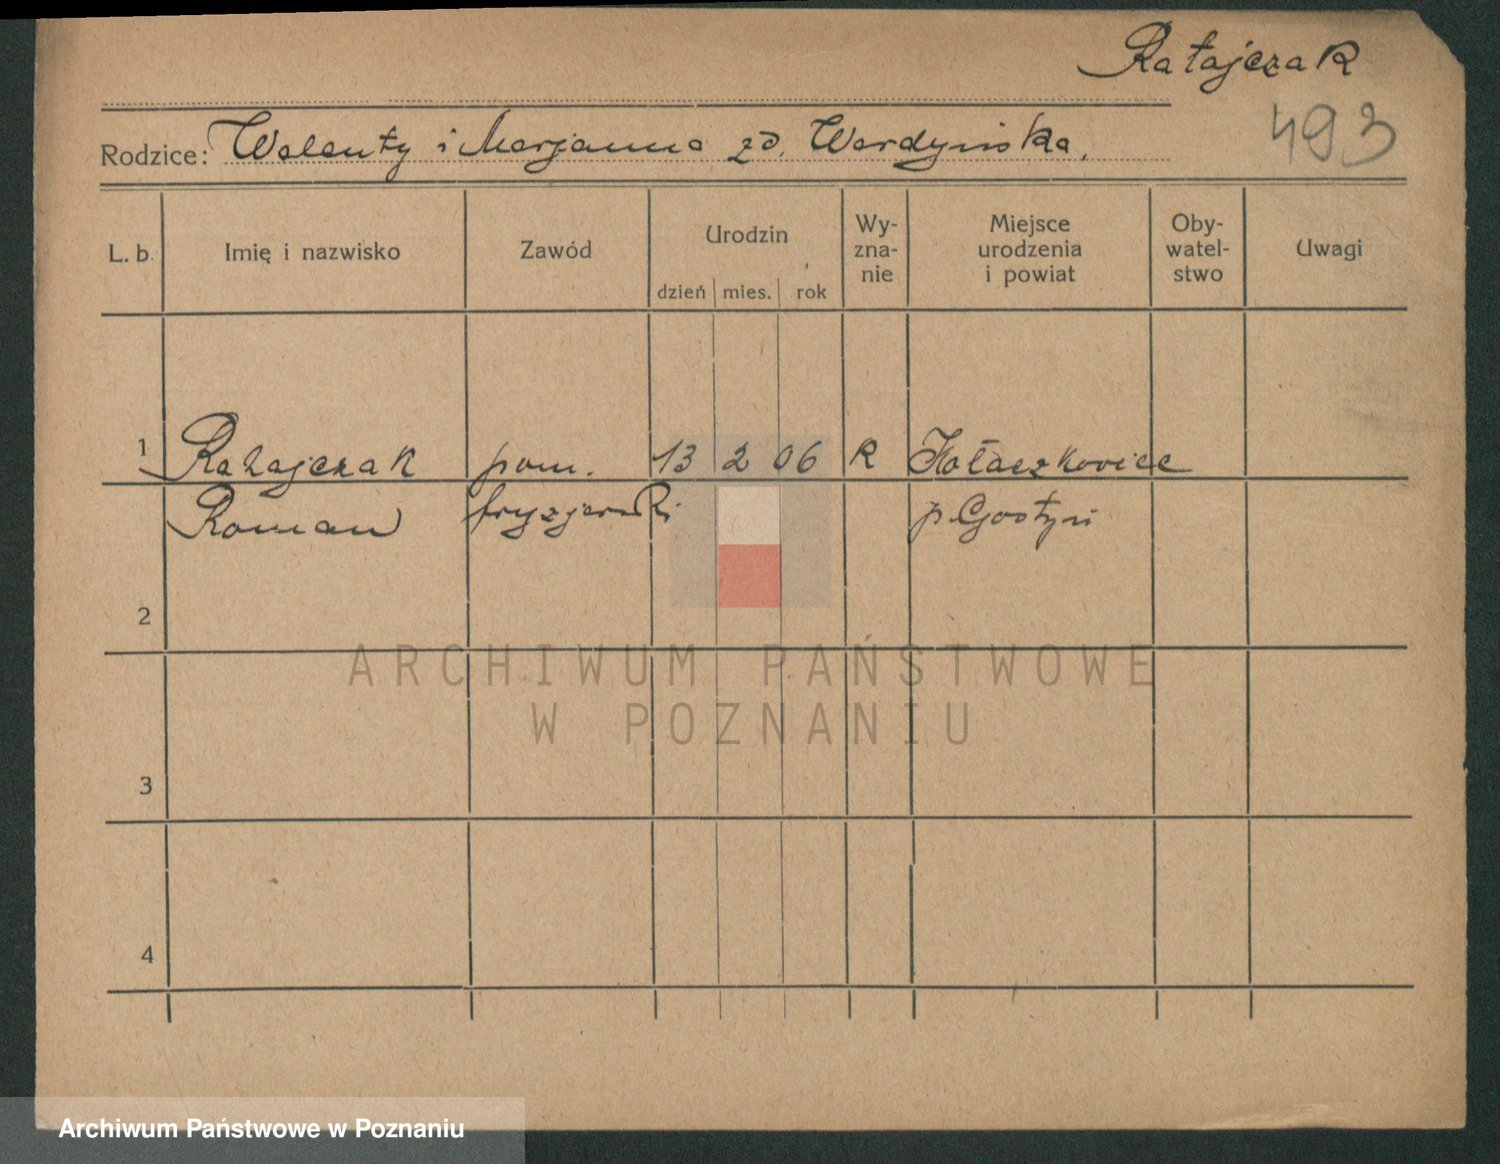 Ratajczak
493
Rodzice: Walenty i Marjanna zd. Wardyńska.
L. b. Imię i nazwisko Zawód Urodzin Wy- Miejsce Oby- Uwagi
zna- urodzenia watel-
nie i powiat stwo
dzień mies. rok
1 Ratajczak pom. 13 2 06 R Kołaczkowice
Roman fryzjerski p. Gostyń
2
ARCHIWUM PAŃSTWOWE
W POZNANIU
3
4
Archiwum Państwowe w Poznaniu